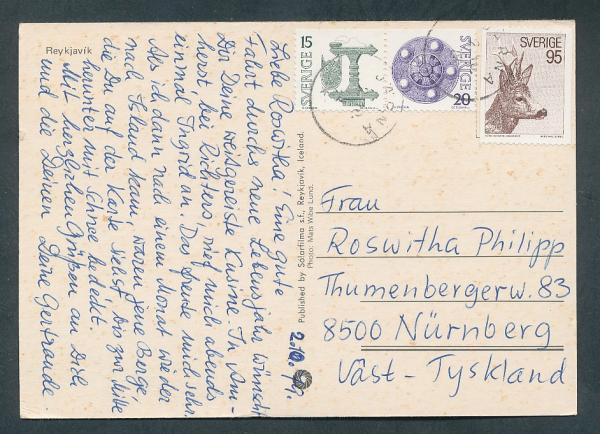 Reykjavík
Liebe Roswitha! Eine gute
Fahrt durchs neue Lebensjahr wünscht
Dir Deine weitgereiste Kusine. In Am-
herst, bei Richters, rief mich abends
einmal Ingrid an. Da freue mich sehr.
Als ich dann nach einem Monat wieder
nach Island kam, waren jene Berge,
die Du auf der Karte siehst bis zur Mitte
herunter mit Schnee bedeckt.
Mit herzlichen Grüßen an Dich
und die Deinen Deine Gertraude.
2.10.
Published by Sólarfilma s.f., Reykjavík, Iceland.
Photo: Mats Wibe Lund.
SVERIGE 15
SVERIGE 20
SVERIGE
95
Frau
Roswitha Philipp
Thumenbergerw. 83
8500 Nürnberg
Väst-Tyskland